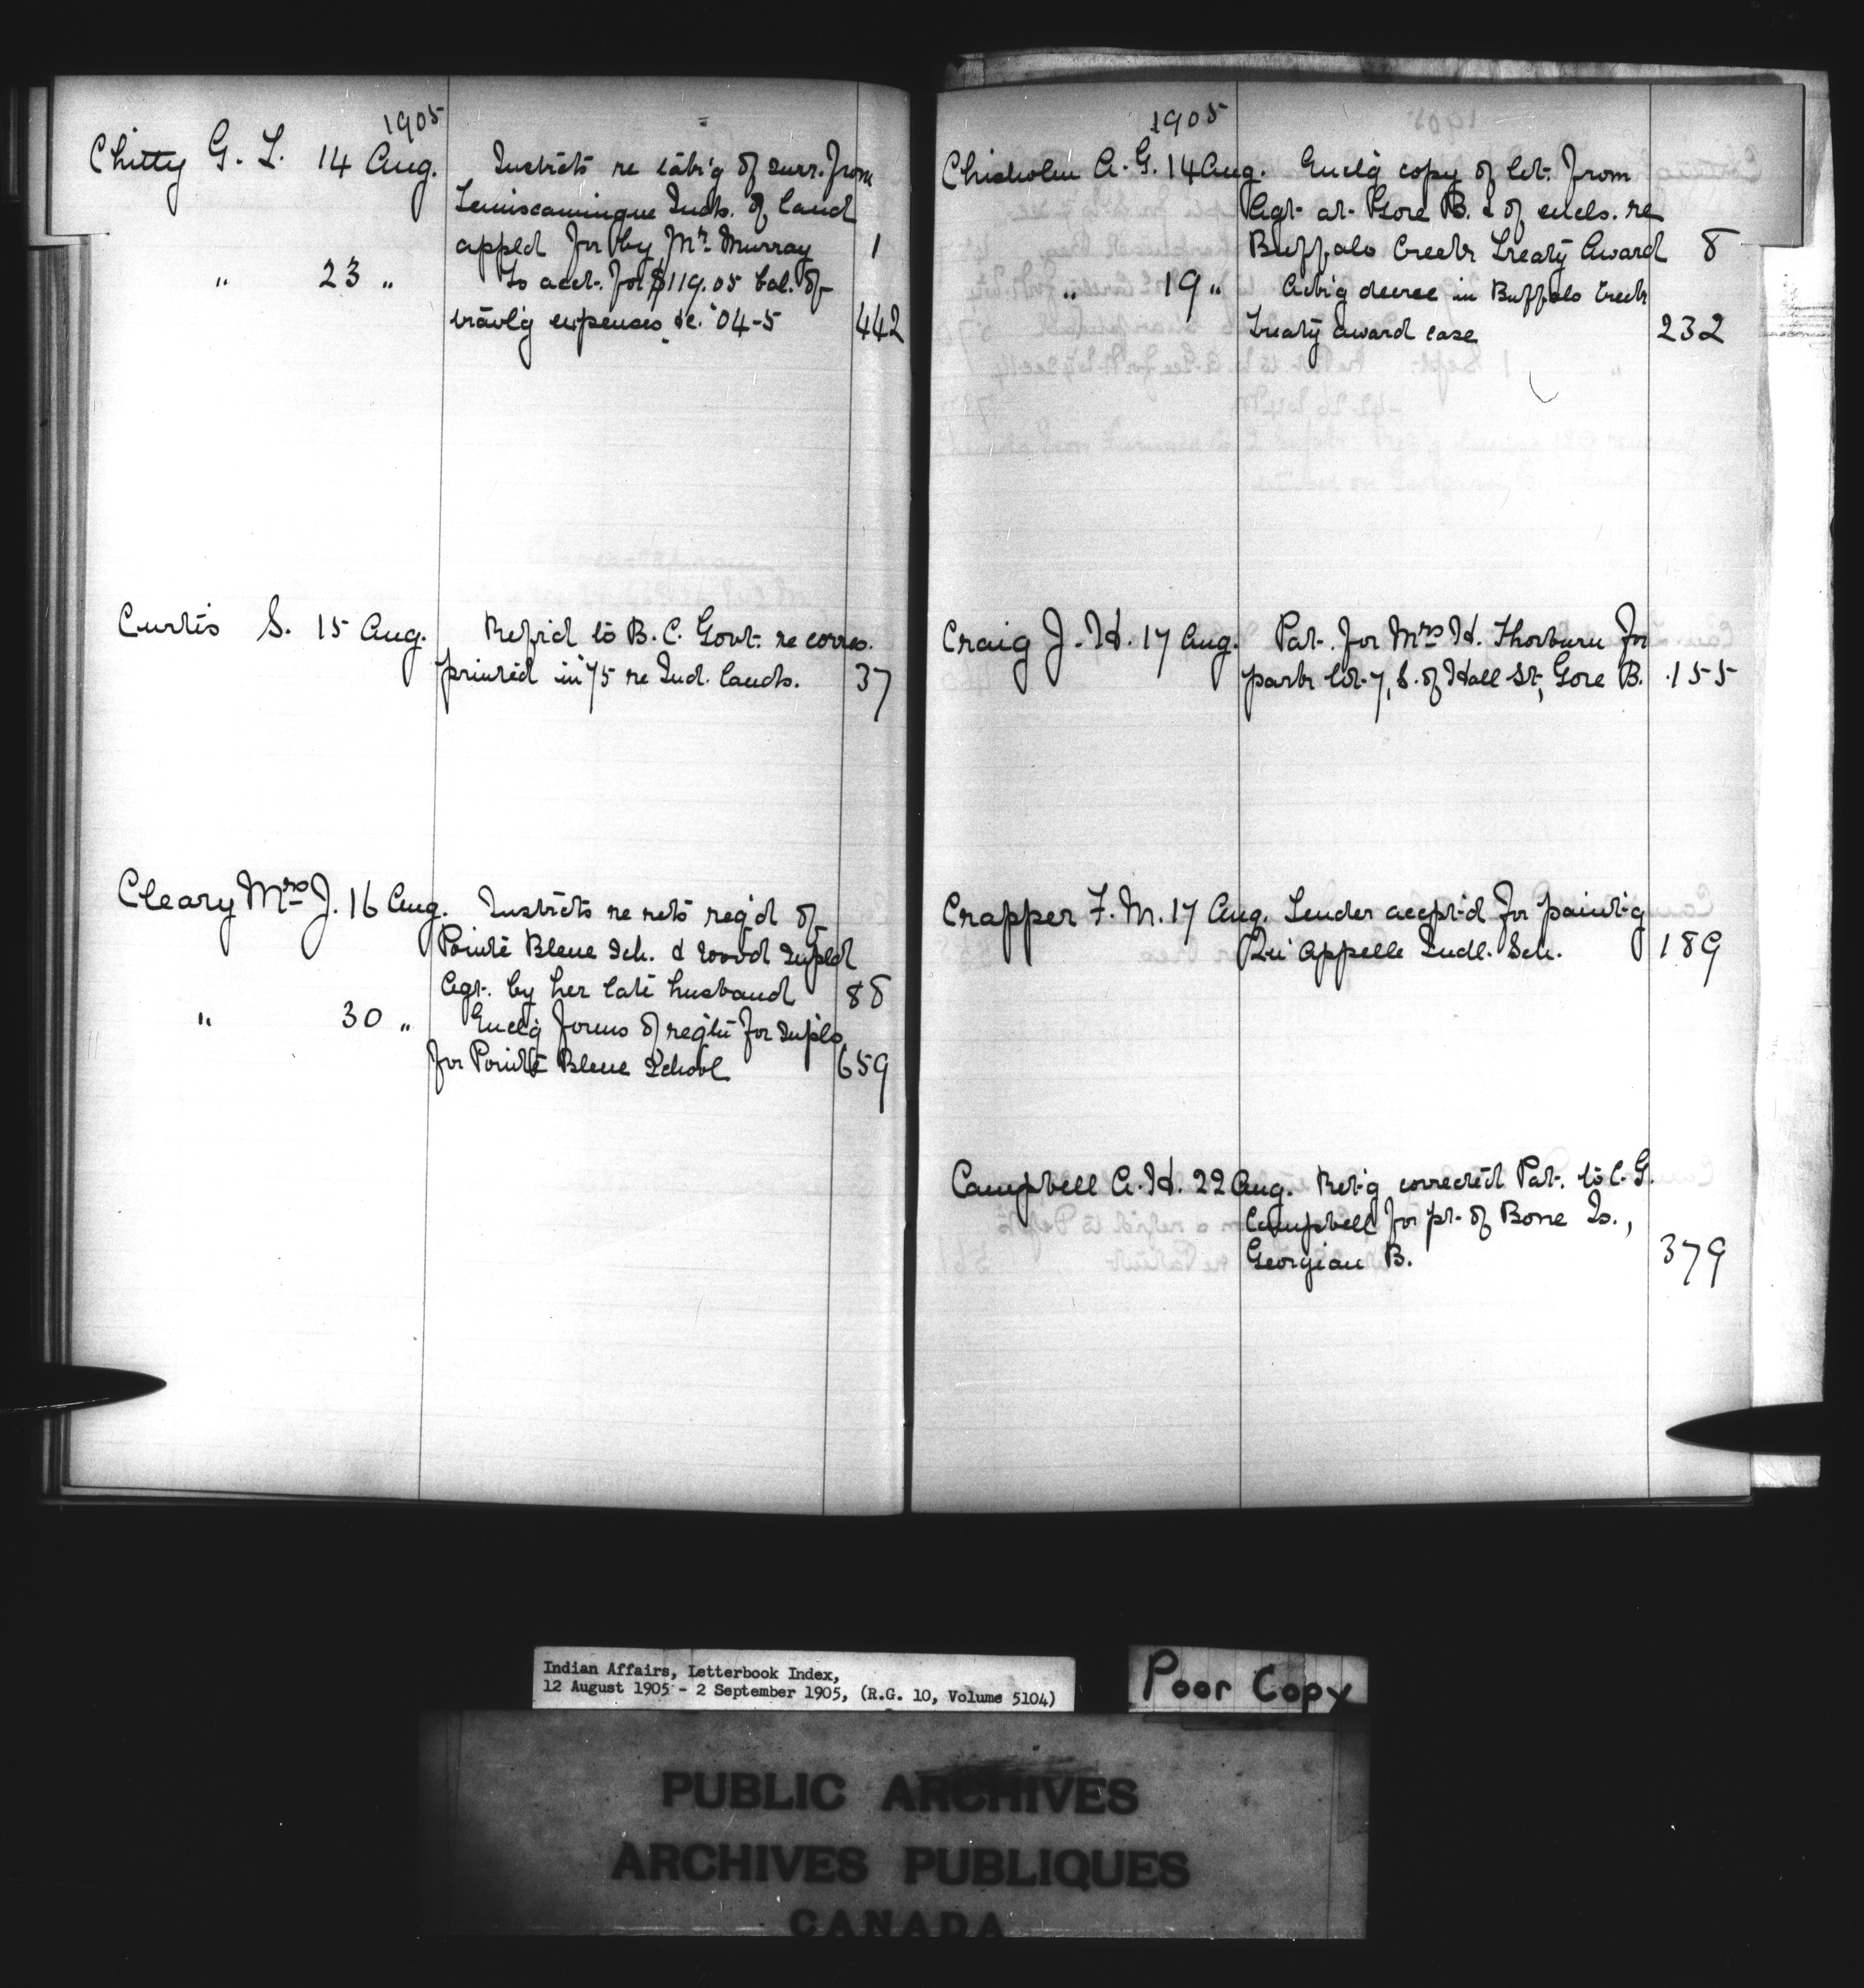 1905
Chitty G. L. 14 Aug. Instrcts re tak'g of surr. from
Temiscamingue Inds. of land
appld for by Mr. Murray 1
" 23 " To acct. for $119.05 bal. of
travl'g expenses &c. '04-5 442
Curtis S. 15 Aug. Ref'r'd to B.C. Govt. re corres.
printed in '75 re Ind. lands. 37
Cleary Mrs J. 16 Aug. Instrcts re rets req'd of
Pointe Bleue Sch. & wood suppld
Agt. by her late husband 88
" 30 " Encl'g forms of reg'tn for supls
for Pointe Bleue School 659
1905
Chisholm A. G. 14 Aug. Encl'g copy of let. from
Agt. at Gore B. & of encls. re
Buffalo Creek Treaty Award 8
" 19 " Ack'g decree in Buffalo Creek
Treaty award case 232
Craig J. H. 17 Aug. Pat. for Mrs H. Thorburn for
park lot 7, S. of Hall St., Gore B. 155
Crapper F. M. 17 Aug. Tender accpt'd for paint'g
Qu'Appelle Indl. Sch. 189
Campbell A. H. 22 Aug. Ret'g corrected Pat. to C. G.
Campbell for pt. of Bone Is.,
Georgian B. 379
Indian Affairs, Letterbook Index,
12 August 1905 - 2 September 1905, (R.G. 10, Volume 5104)
Poor Copy
PUBLIC ARCHIVES
ARCHIVES PUBLIQUES
CANADA